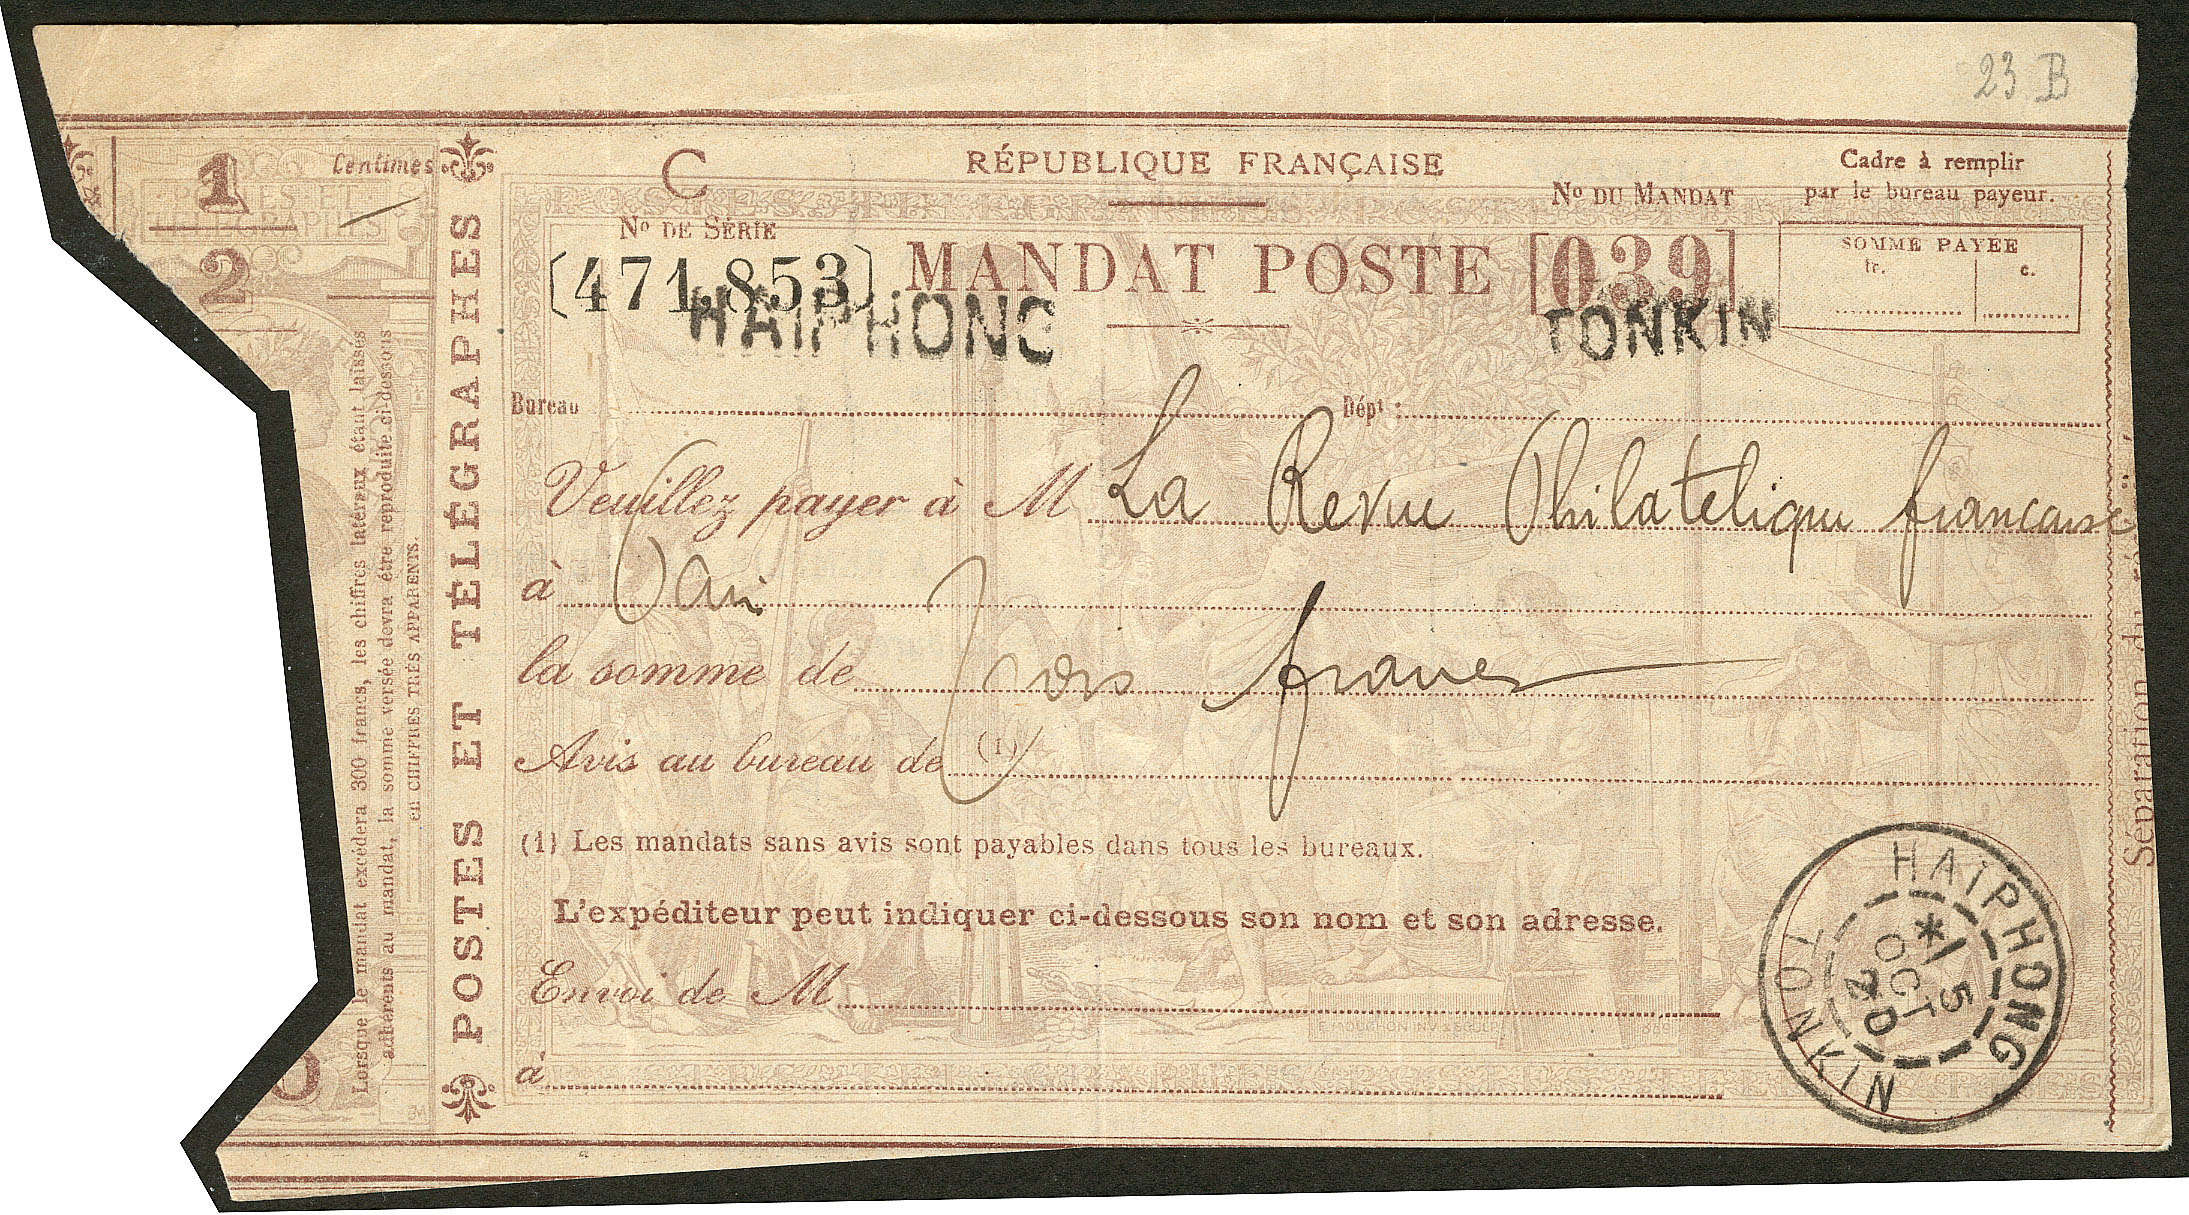 23 B
1
2
Centimes
POSTES ET
TÉLÉGRAPHES
Lorsque le mandat excédera 300 francs, les chiffres latéraux étant laissés
adhérents au mandat, la somme versée devra être reproduite ci-dessous
en CHIFFRES TRÈS APPARENTS.
POSTES ET TÉLÉGRAPHES
C
RÉPUBLIQUE FRANÇAISE
Cadre à remplir
par le bureau payeur.
No DE SÉRIE
No DU MANDAT
[471.853]
MANDAT POSTE
[039]
SOMME PAYÉE
fr. c.
HAIPHONG
TONKIN
Bureau
Dépt :
Veuillez payer à M La Revue Philatelique française
à Paris
la somme de Trois francs
Avis au bureau de (1)
(1) Les mandats sans avis sont payables dans tous les bureaux.
L'expéditeur peut indiquer ci-dessous son nom et son adresse.
Envoi de M
à
Séparation du
HAIPHONG
* 15
OCT
20
TONKIN